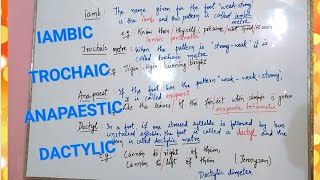 iamb. The name given for the foot "weak-strong"
is the iamb and this pattern is called iambic
metre
IAMBIC
e.g Know then thyself, presume not
iambic pentametre
Trochaic metre: When the pattern is "strong-weak" it is
called trochaic metre.
TROCHAIC
e.g Tiger! Tiger! burning bright
Anapaest: If the foot has the pattern "weak-weak-strong,
it is called anapaest
ANAPAESTIC
e.g Like the leaves of the forest when summer is green
(anapaestic tetrametre)
Dactyl: In a foot, if one stressed syllable is followed by two
unstressed syllables, the foot is called a dactyl and the
is called dactylic metre.
DACTYLIC
e.g. Cannon to right of them,
Cannon to left of them (Tennyson)
Dactylic dimeter